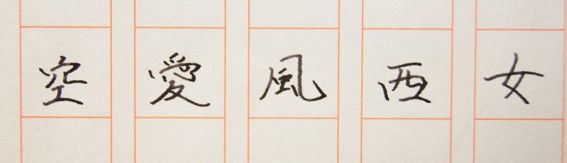 空愛風西女